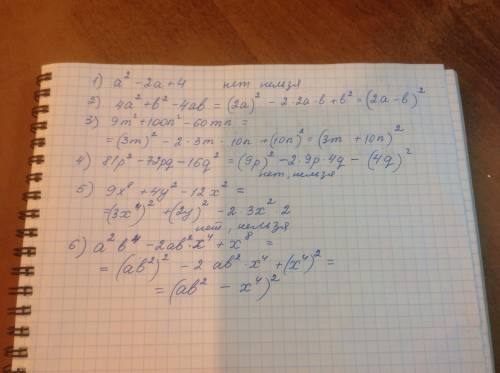 1) a² - 2a + 4 нет нельзя
2) 4a² + в² - 4ав = (2a)² - 2·2a·в + в² = (2a - в)²
3) 9m² + 100n² - 60mn =
= (3m)² - 2·3m·10n + (10n)² = (3m + 10n)²
4) 81p² - 72pq - 16q² = (9p)² - 2·9p·4q - (4q)²
нет, нельзя
5) 9x⁸ + 4y² - 12x² =
= (3x⁴)² + (2y)² - 2·3x² 2
нет, нельзя
6) a²в⁴ - 2aв²·x⁴ + x⁸ =
= (aв²)² - 2 aв²·x⁴ + (x⁴)² =
= (aв² - x⁴)²